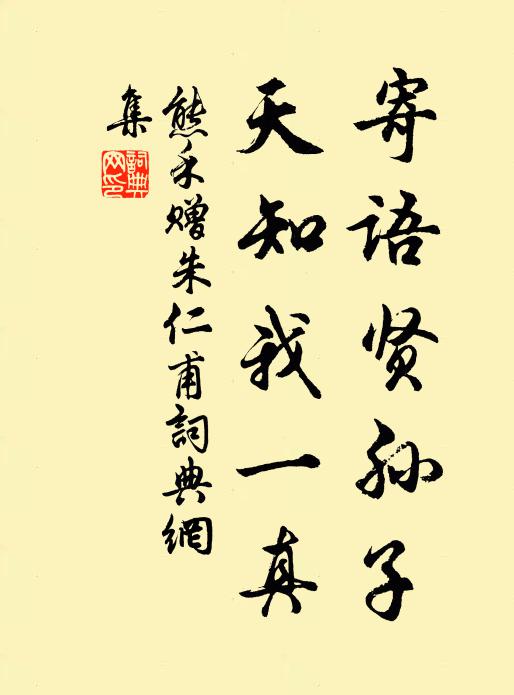 寄语贤孙子
天知我一真
熊禾赠朱仁甫詞典網
集
詞典网印